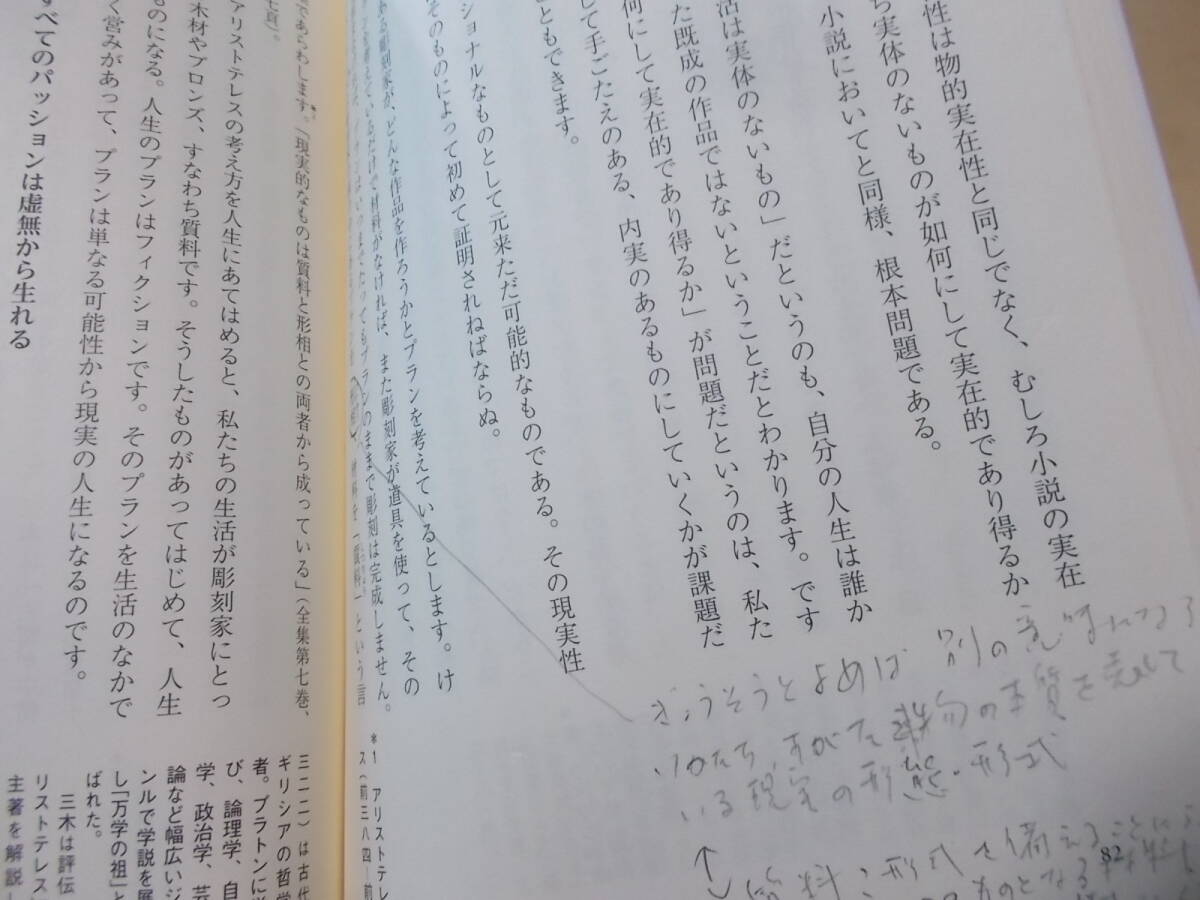 性は物的実在性と同じでなく、むしろ小説の実在
ち実体のないものが如何にして実在的であり得るか
小説においてと同様、根本問題である。
活は実体のないもの」だというのも、自分の人生は誰か
た既成の作品ではないということだとわかります。です
何にして実在的であり得るか」が問題だというのは、私た
して手ごたえのある、内実のあるものにしていくかが課題だ
こともできます。
ショナルなものとして元来ただ可能的なものである。その現実性
そのものによって初めて証明されねばならぬ。
ある彫刻家が、どんな作品を作ろうかとプランを考えているとします。け
を考えているだけで材料がなければ、また彫刻家が道具を使って、その
プランはいつまでたってもプランのままで彫刻は完成しません。
という言
ぎょうそうとよめば 別の意味になる
かたち、すがた 事物の本質を表して
いる現実の形態・形式
↕
質料:形式を備えることに
ものとなる材料
82
*1 アリストテレ
ス(前三八四―前
であらわします。「現実的なものは質料と形相との両者から成っている」(全集第七巻、
七頁)。
アリストテレスの考え方を人生にあてはめると、私たちの生活が彫刻家にとっ
木材やブロンズ、すなわち質料です。そうしたものがあってはじめて、人生
ものになる。人生のプランはフィクションです。そのプランを生活のなかで
く営みがあって、プランは単なる可能性から現実の人生になるのです。
すべてのパッションは虚無から生れる
三二二)は古代
ギリシアの哲学
者。プラトンに学
び、論理学、自
学、政治学、芸
論など幅広いジ
ンルで学説を展
し「万学の祖」と
ばれた。
三木は評伝
リストテレス
主著を解説し